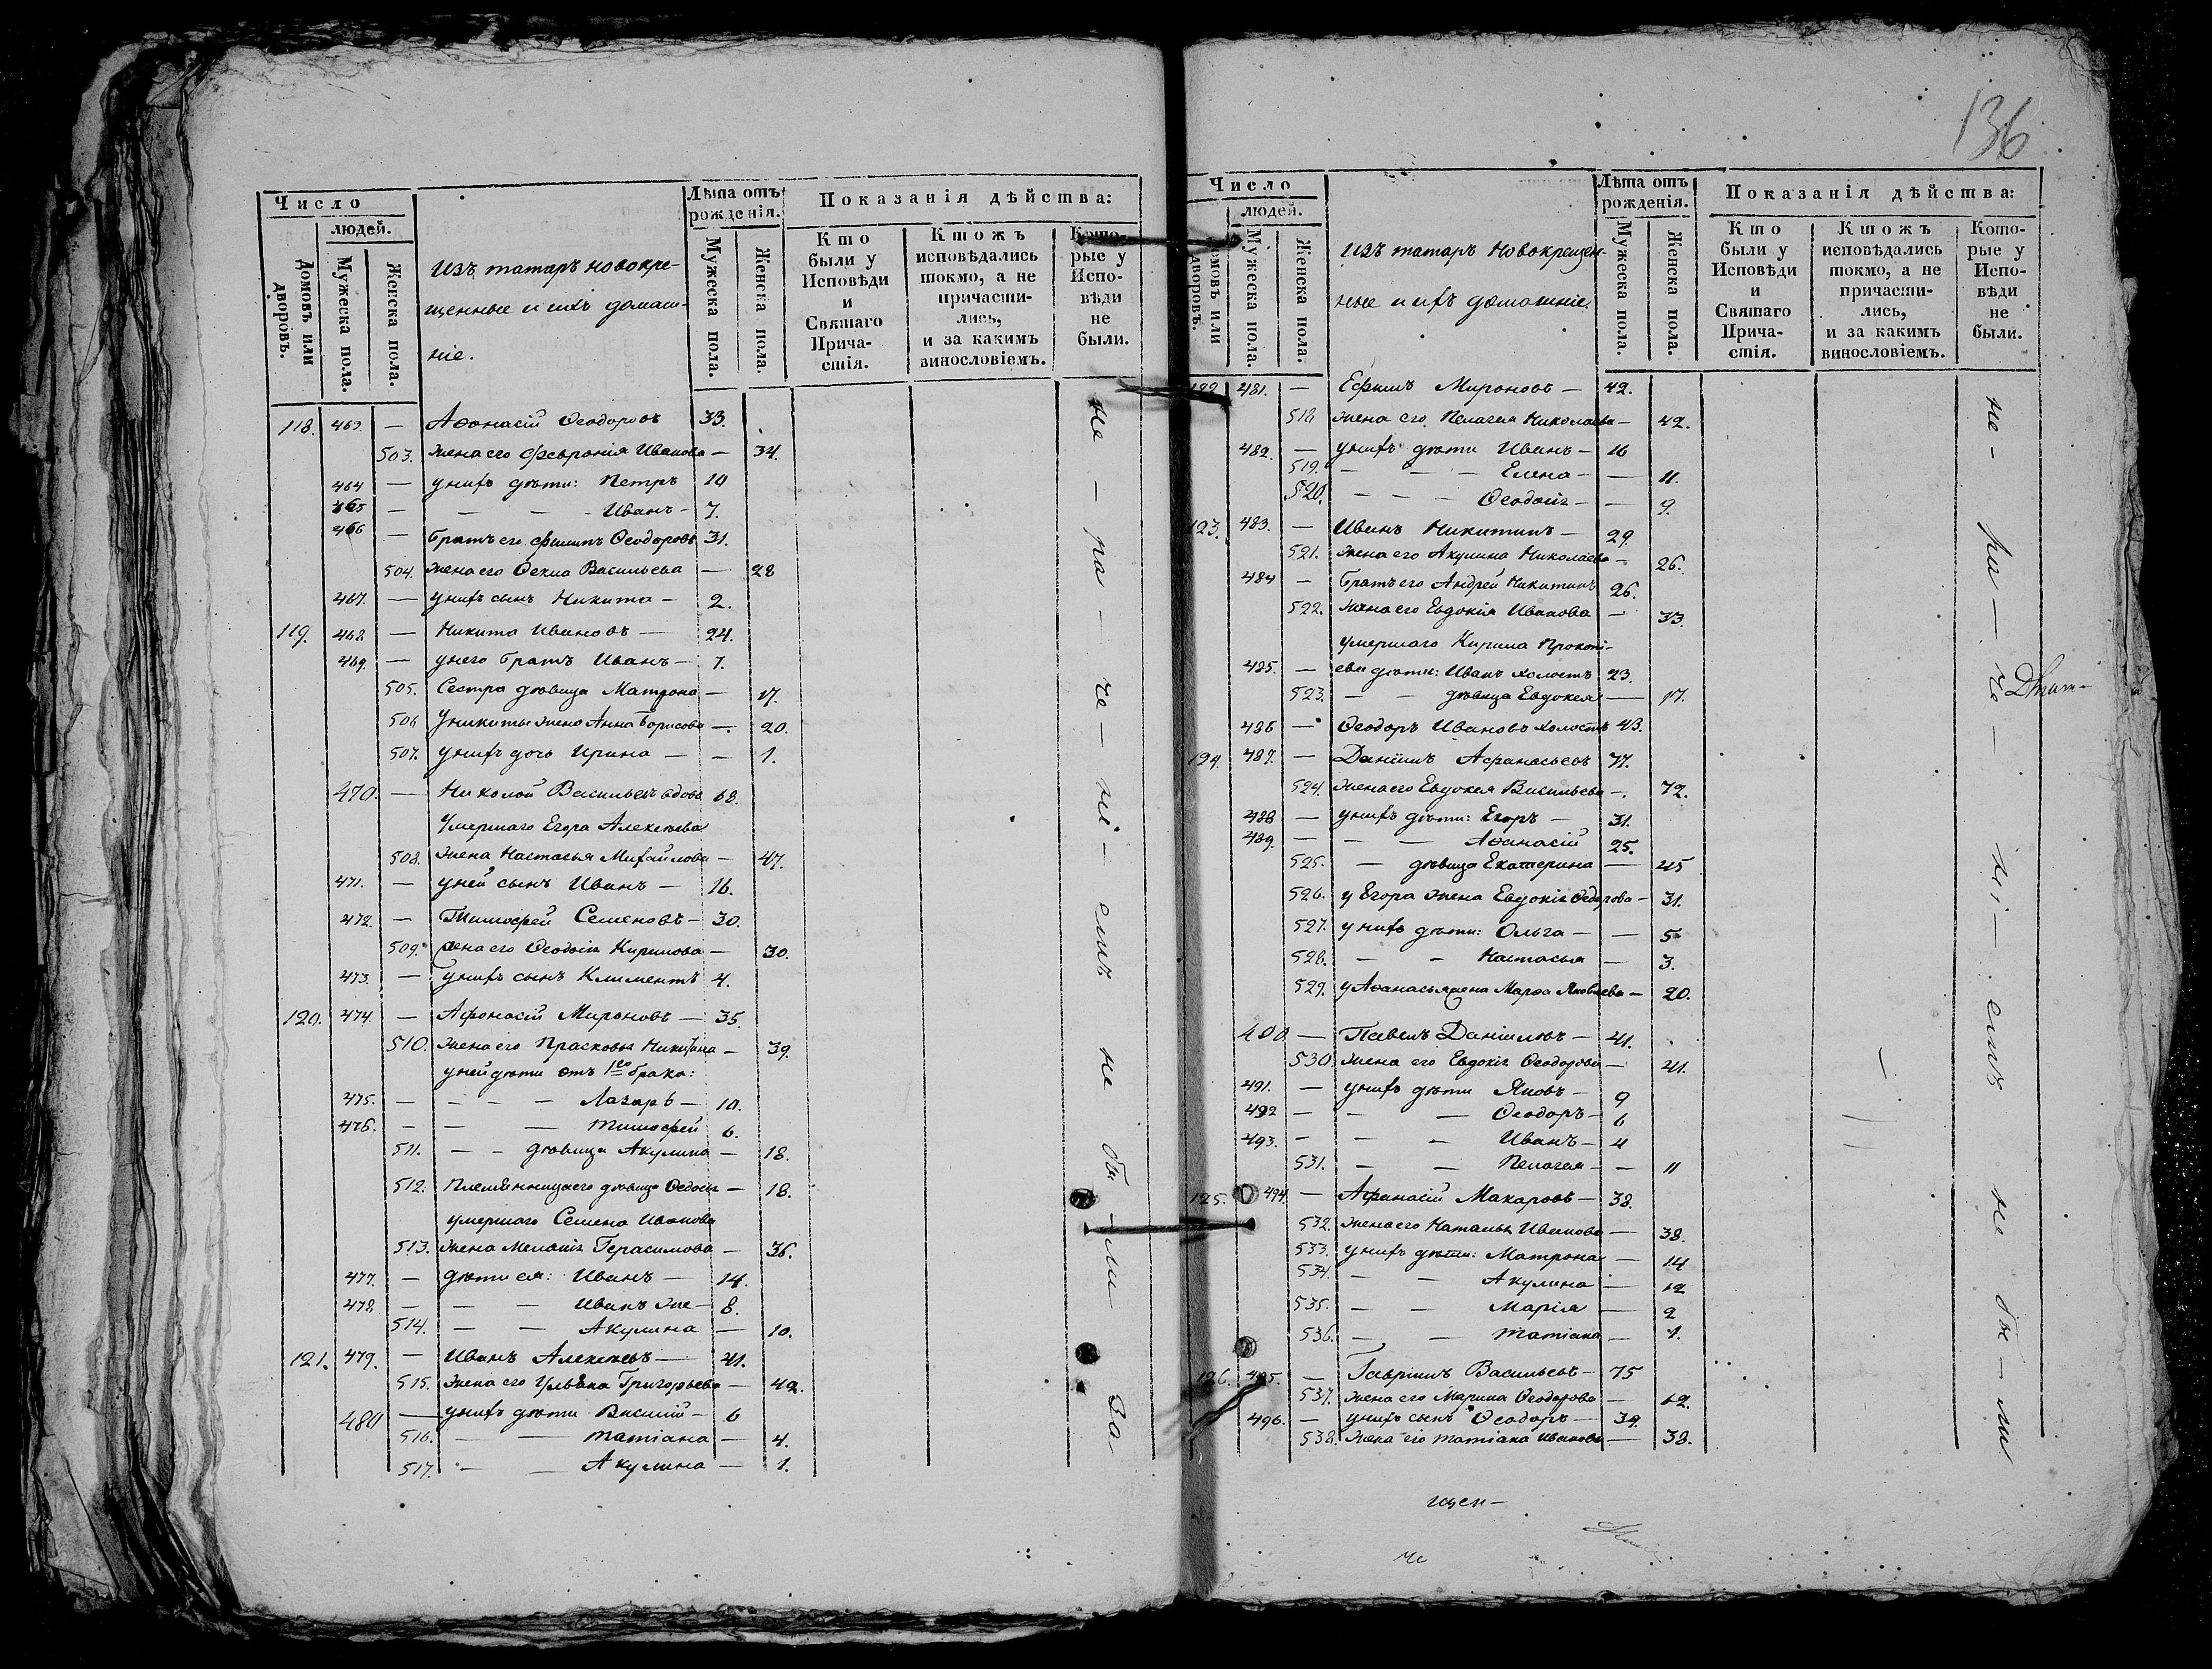 136
Число
людей.
Домовъ или дворовъ.
Мужеска пола.
Женска пола.
Изъ татаръ новокре-
щенные и ихъ домаш-
ніе.
Лѣта отъ рожденія.
Мужеска пола.
Женска пола.
Показанія дѣйства:
Кто были у Исповѣди и Святаго Прича-стія.
Ктожъ исповѣдались токмо, а не причасти-лись, и за какимъ винословіемъ.
Кото-рые у Испо-вѣди не были.
118. 463. — Аѳонасій Ѳеодоровъ 33.
503. жена его Февронія Иванова — 34.
464 — у нихъ дѣти: Петръ 10
465 — — — Иванъ — 7.
466 — Братъ его Филипъ Ѳеодоровъ 31.
504. жена его Ѳекла Васильева — 28
467. — у нихъ сынъ Никита — 2.
119. 468 — Никита Ивановъ — 24.
469. — у него братъ Иванъ — 7.
505. Сестра дѣвица Матрона — 17.
506 У никиты жена Анна Борисова — 20.
507. у нихъ дочь Ирина — — 1.
470. — Николай Васильевъ вдовъ 68.
Умершаго Егора Алексѣева
508. жена Настасья Михайлова — 47.
471. — у ней сынъ Иванъ — 16.
472. — Тимофей Семеновъ — 30.
509. жена его Ѳеодосія Кирилова — 30.
473. — у нихъ сынъ Климентъ 4.
120. 474. — Афонасій Мироновъ — 35.
510. жена его Прасковья Никитина — 39.
у ней дѣти отъ 1го брака:
475. — — — — Лазарь — 10.
476. — — — Тимофей 6.
511. — — дѣвица Акулина — 18.
512. Племянница его дѣвица Ѳедосія — 18.
умершаго Семена Иванова
513. жена Меланія Герасимова — 36.
477. — дѣти ея: Иванъ — 14.
478 — — — Иванъ же — 8.
514. — — Акулина — 10.
121. 479. — Иванъ Алексѣевъ — 41.
515. жена его Ульяна Григорьева — 42.
480 — у нихъ дѣти Василій — 6
516. — — Татіана — 4.
517. — — Акулина — 1.
не — ра — че — ні — емъ не бы — ли за
Число
людей.
домовъ или дворовъ.
Мужеска пола.
Женска пола.
Изъ татаръ новокрещен-
ные и ихъ домашніе.
Лѣта отъ рожденія.
Мужеска пола.
Женска пола.
Показанія дѣйства:
Кто были у Исповѣди и Святаго Прича-стія.
Ктожъ исповѣдались токмо, а не причасти-лись, и за какимъ винословіемъ.
Кото-рые у Испо-вѣди не были.
122 481. — Ефимъ Мироновъ — 42.
518 жена его Пелагея Николаева — 42.
482. — у нихъ дѣти Иванъ — 16
519. — — — Елена — — 11.
520. — — — Ѳеодосія — — 9.
123. 483. — Иванъ Никитинъ — 29.
521. жена его Акулина Николаева — 26.
484 — Братъ его Андрей Никитинъ 26.
522. жена его Евдокія Иванова — 33.
умершаго Кирила Прокопі-
485. — ева дѣти: Иванъ холостъ 23.
523. — — дѣвица Евдокея — 17.
486 — Ѳеодоръ Ивановъ холостъ 43.
124. 487. — Даніилъ Афанасьевъ 77.
524. жена его Евдокея Васильева — 72.
488 — у нихъ дѣти: Егоръ — 31.
489. — — — Аѳанасій 25.
525. — дѣвица Екатерина — 45
526. у Егора жена Евдокія Ѳедорова — 31.
527. у нихъ дѣти: Ольга — — 5
528. — — Настасья — 3.
529. у Аѳанасья жена Марѳа Яковлева — 20.
490 — Павелъ Даніиловъ — 41.
530. жена его Евдокія Ѳеодорова — 41.
491. — у нихъ дѣти Яковъ — 9
492 — — — Ѳеодоръ — 6
493. — — — Иванъ — 4
531. — — Пелагея — — 11
125. 494. — Афанасій Макаровъ — 38.
532. жена его Наталья Иванова — 38.
533. у нихъ дѣти: Матрона — 14
534. — — Акулина — 12
535. — — Марія — 2
536. — — Татіана — 1.
126. 495. — Гавріилъ Васильевъ — 75
537. жена его Марина Ѳеодорова — 62.
496. — у нихъ сынъ Ѳеодоръ — 39.
538. жена его Татіана Иванова — 38.
не — ра — че — ні — емъ не бы — ли
щен —